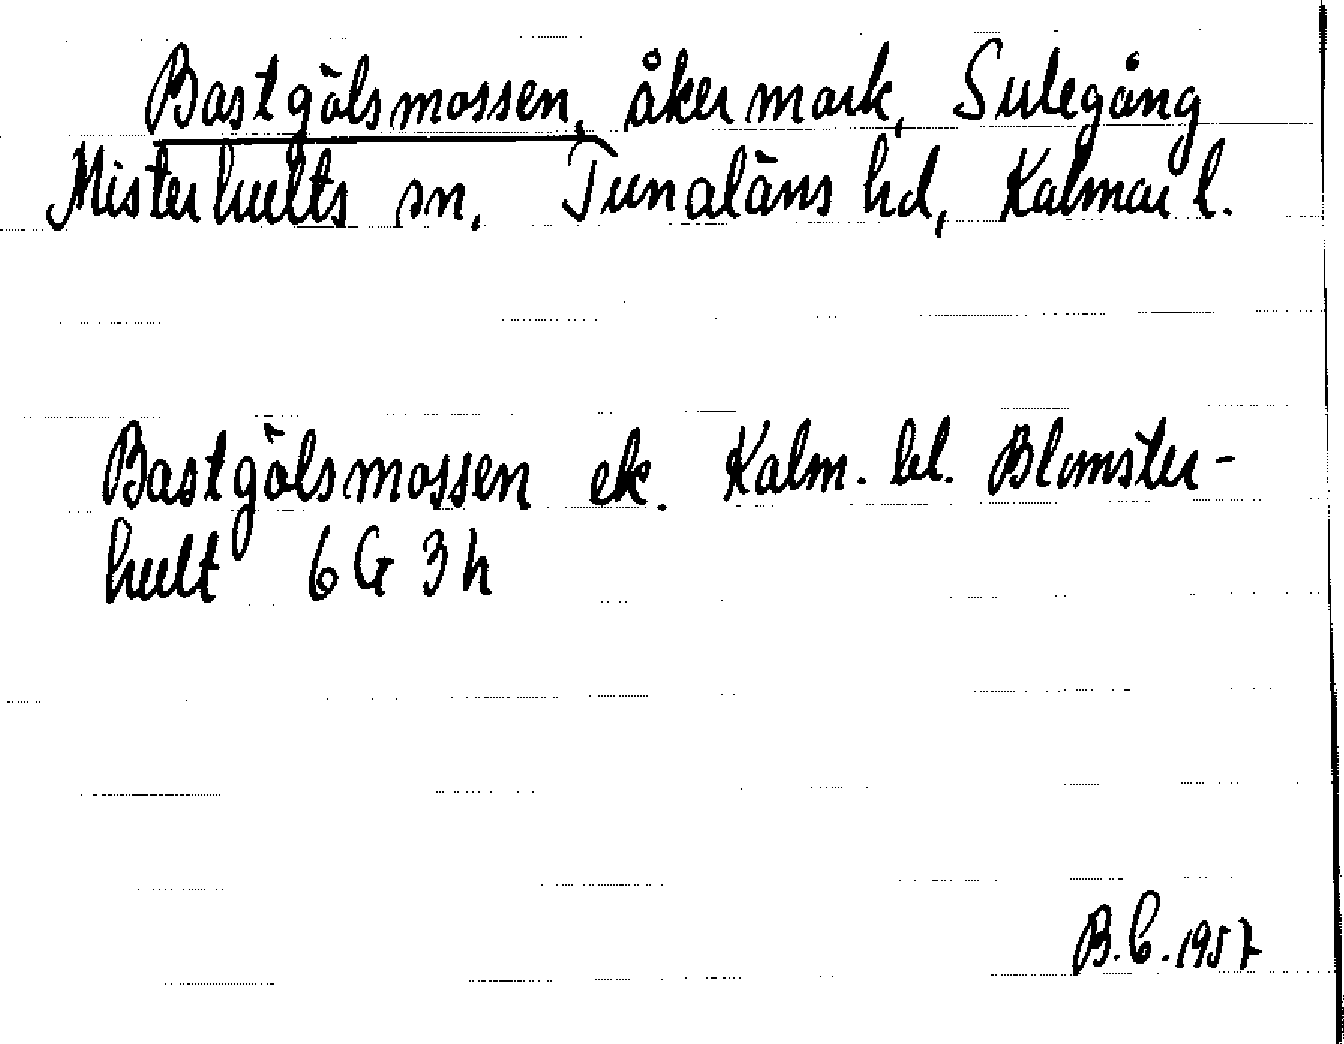 Bastgölsmossen, åkermark, Sulegång
Misterhults sn, Tunaläns hd, Kalmar l.
Bastgölsmossen ek. Kalm. bl. Blomster-
hult 6G 3h
B.C. 1957